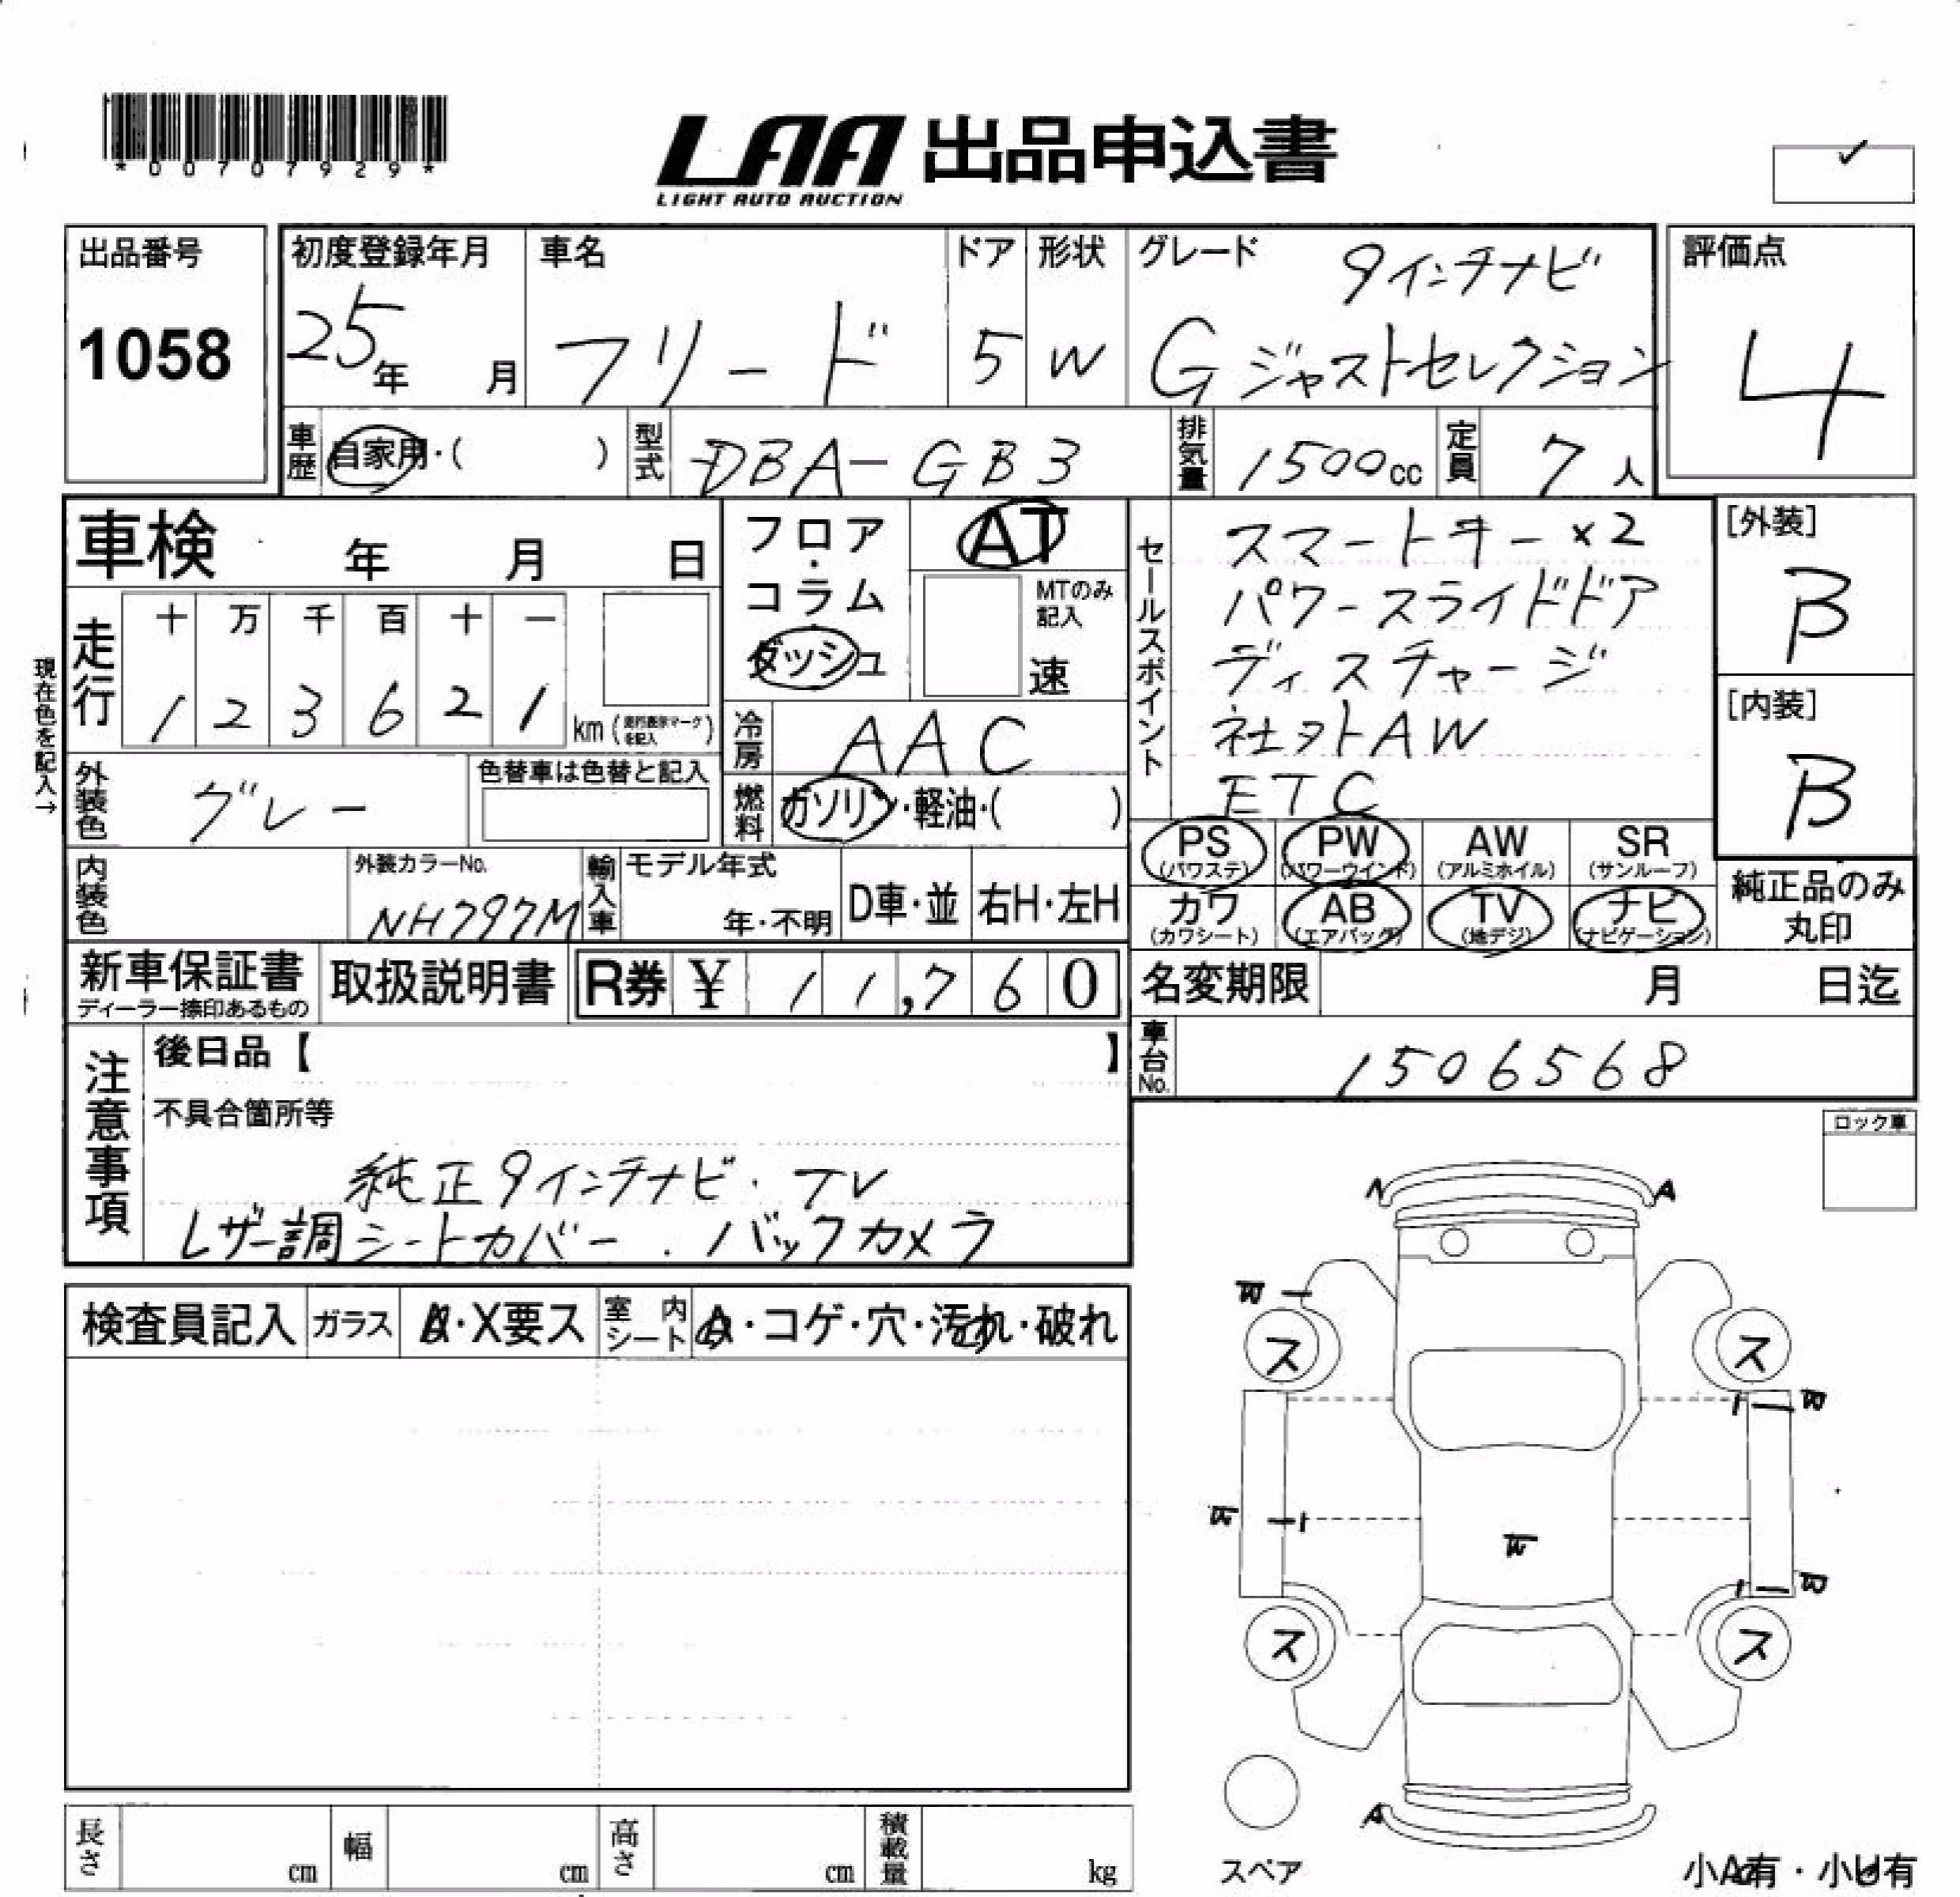 *00707929*
LAA 出品申込書
LIGHT AUTO AUCTION
✓
出品番号
1058
初度登録年月
25年 月
車名
フリード
ドア
5
形状
W
グレード
9インチナビ
G ジャストセレクション
評価点
4
車歴 自家用・( )
型式 DBA-GB3
排気量 1500cc
定員 7人
車検 年 月 日
フロア・コラム
ダッシュ
AT
MTのみ記入
速
セールスポイント
スマートキー×2
パワースライドドア
ディスチャージ
社外AW
ETC
[外装]
B
[内装]
B
現在色を記入→
走行
十 万 千 百 十 一
1 2 3 6 2 1
km(走行表示マークを記入)
冷房 AAC
外装色 グレー
色替車は色替と記入
燃料 ガソリン・軽油・( )
PS (パワステ)
PW (パワーウインド)
AW (アルミホイル)
SR (サンルーフ)
カワ (カワシート)
AB (エアバッグ)
TV (地デジ)
ナビ (ナビゲーション)
純正品のみ
丸印
内装色
外装カラーNo.
NH797M
輸入車
モデル年式
年・不明
D車・並
右H・左H
新車保証書
ディーラー捺印あるもの
取扱説明書
R券 ¥ 11,760
名変期限 月 日迄
車台No. 1506568
注意事項
後日品【 】
不具合箇所等
純正9インチナビ・TV
レザー調シートカバー.バックカメラ
ロック車
検査員記入
ガラス A・X要ス
室内シート A・コゲ・穴・汚れ・破れ
A
A
W
ス
ス
W
ス
ス
A
スペア
小A有・小U有
長さ cm
幅 cm
高さ cm
積載量 kg